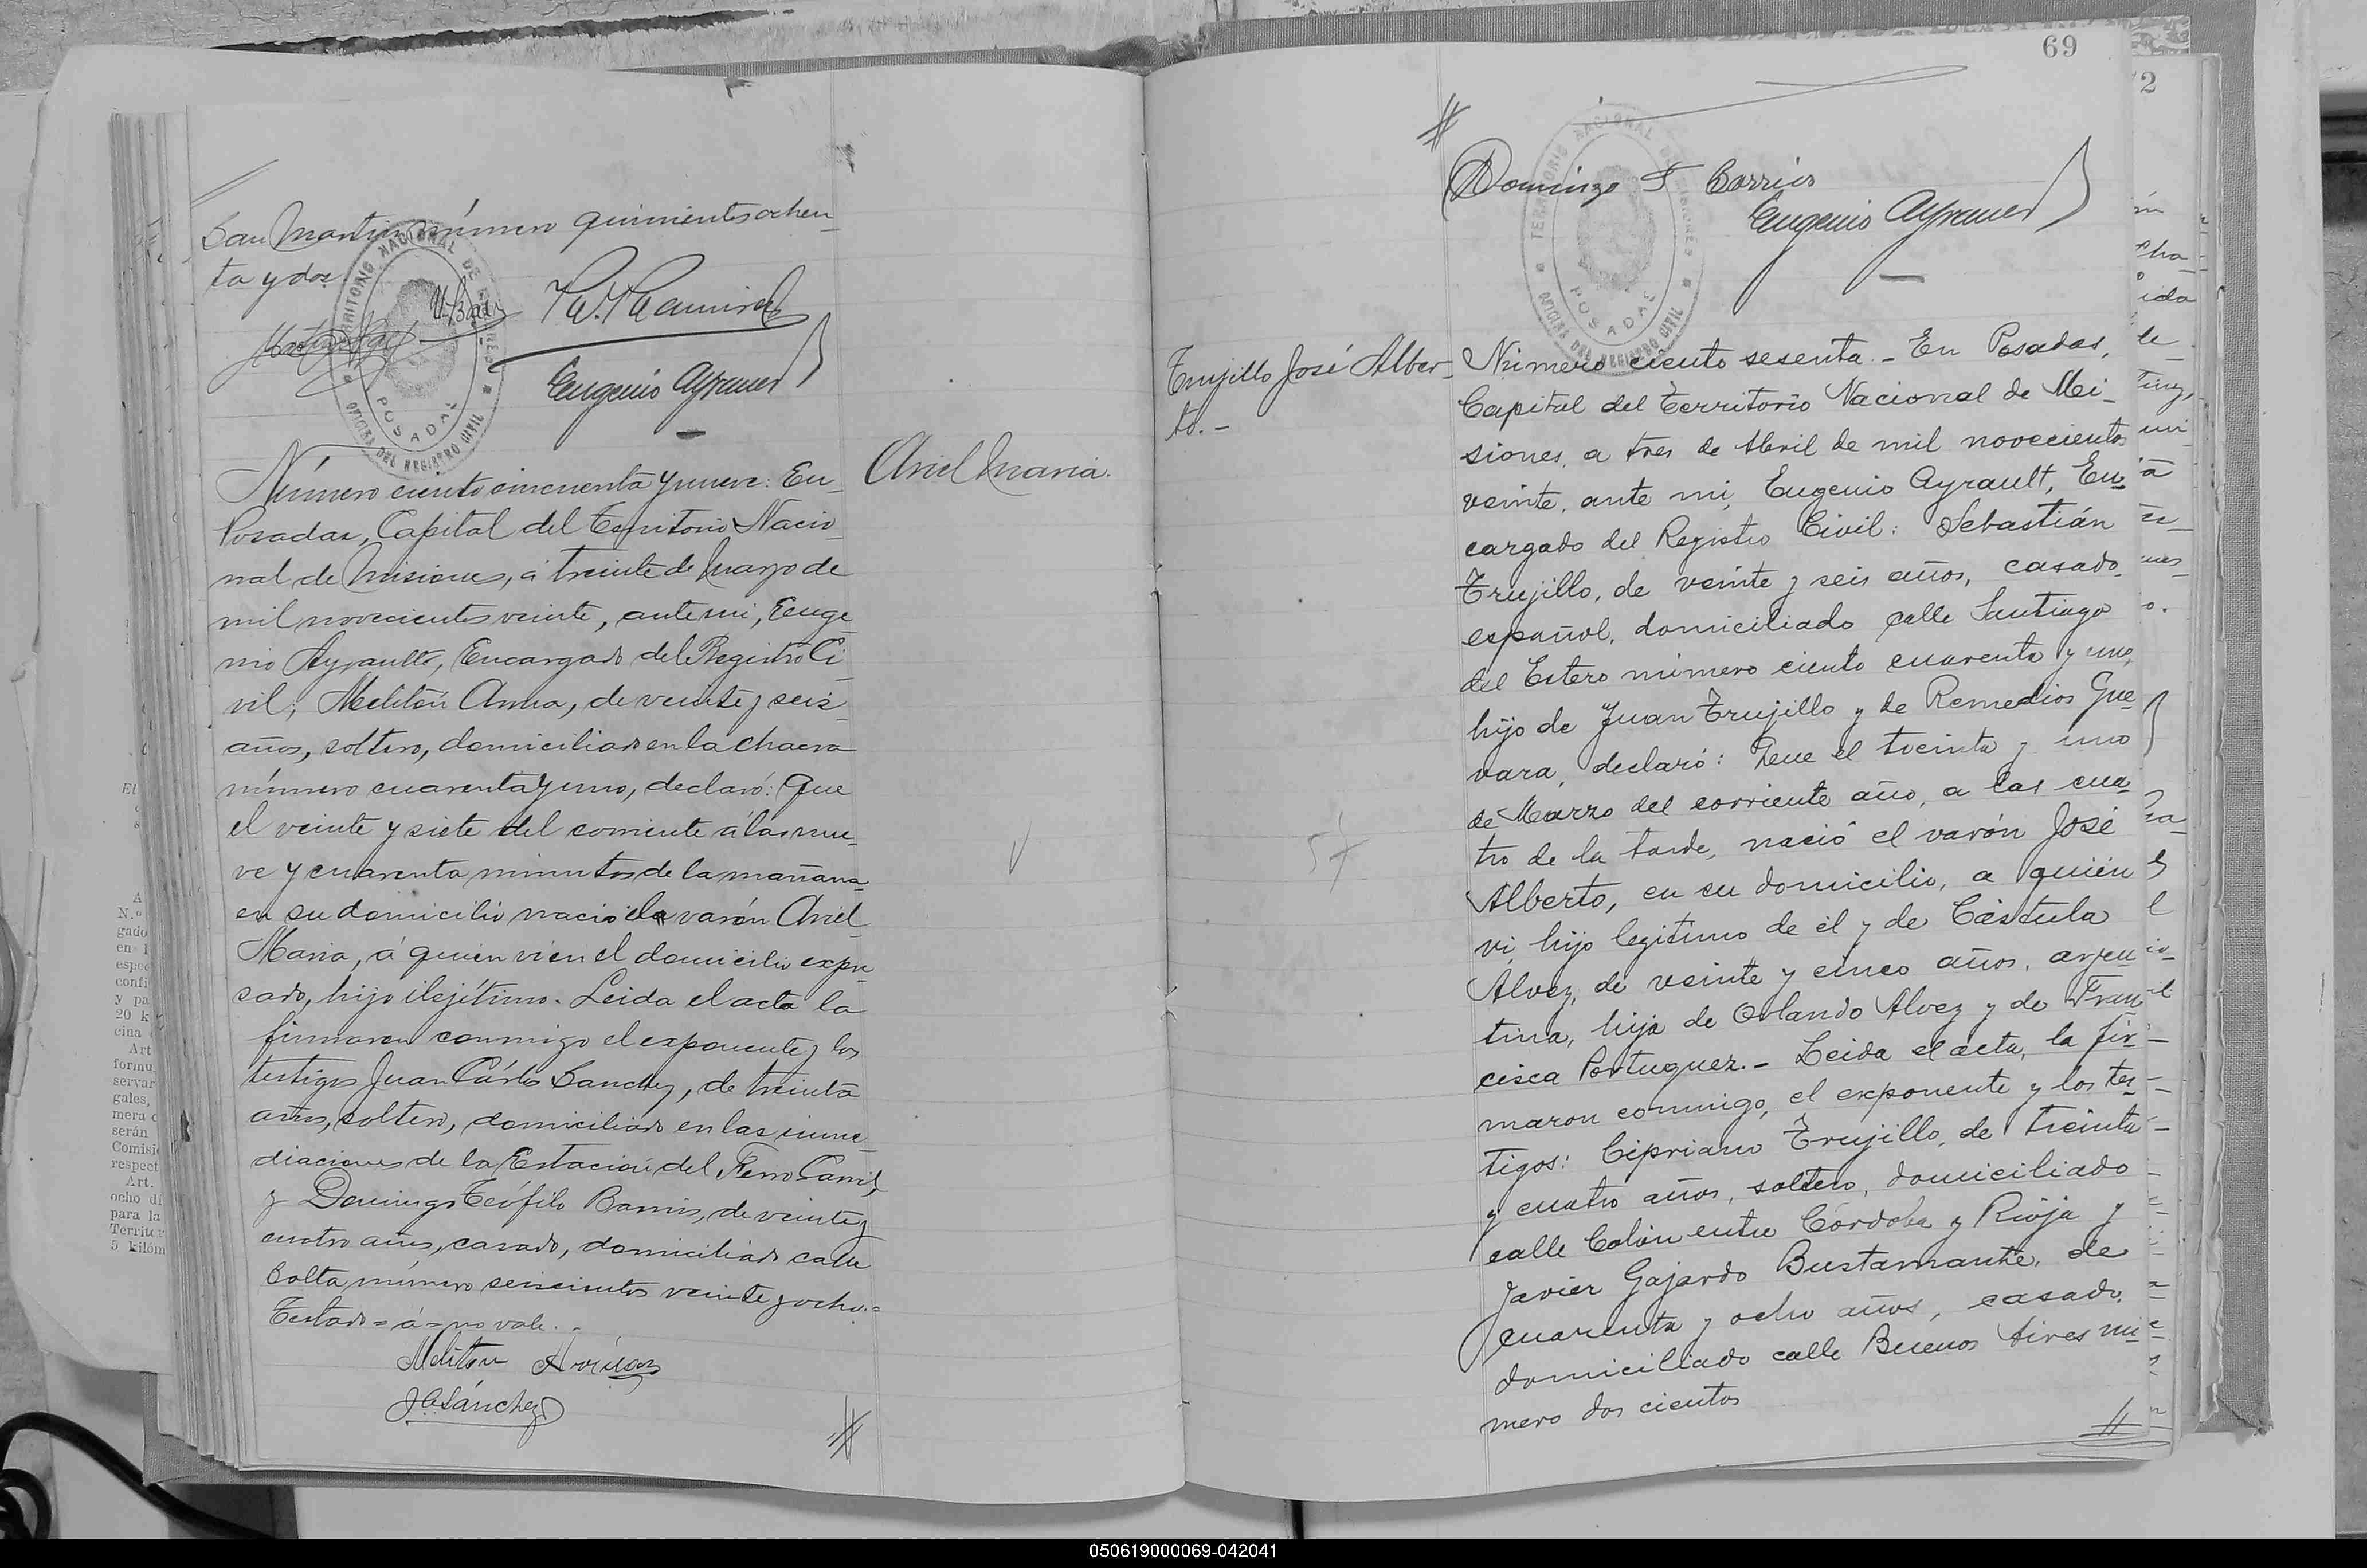 San Martin número quinientos ochen-
ta y dos.
Eugenio Ayrault
TERRITORIO NACIONAL DE MISIONES
OFICINA DEL REGISTRO CIVIL
POSADAS
Ariel Maria.
Número ciento cincuenta y nueve: En
Posadas, Capital del Territorio Nacio-
nal de Misiones, á treinta de Marzo de
mil novecientos veinte, ante mi, Euge-
nio Ayrault, Encargado del Registro Ci-
vil; Melitón, de veinte y seis
años, soltero, domiciliado en la chacra
número cuarenta y uno, declaró: Que
el veinte y siete del corriente á las nue-
ve y cuarenta minutos de la mañana
en su domicilio nació el varón Ariel
Maria, á quien vi en el domicilio expre
sado, hijo ilejítimo. Leida el acta la
firmaron conmigo el exponente y los
testigos Juan Cárlos Sanchez, de treinta
años, soltero, domiciliado en las inme-
diaciones de la Estación del Ferro Carril,
y Domingo Teófilo Barrios, de veinte y
cuatro años, casado, domiciliado calle
Salta número seiscientos veinte y ocho.=
Testado = á = no vale. -
Meliton
J C Sánchez
69
Domingo T Barrios
Eugenio Ayrault
TERRITORIO NACIONAL DE MISIONES
OFICINA DEL REGISTRO CIVIL
POSADAS
Trujillo José Alber-
to. -
Número ciento sesenta. - En Posadas,
Capital del Territorio Nacional de Mi-
siones, a tres de Abril de mil novecientos
veinte, ante mi, Eugenio Ayrault, En-
cargado del Registro Civil: Sebastián
Trujillo, de veinte y seis años, casado,
español, domiciliado calle Santiago
del Estero número ciento cuarenta y uno,
hijo de Juan Trujillo y de Remedios Gue-
vara, declaró: Que el treinta y uno
de Marzo del corriente año, a las cua-
tro de la tarde, nació el varón José
Alberto, en su domicilio, a quién
vi, hijo legitimo de él y de Cástula
Alvez, de veinte y cinco años, arjen-
tina, hija de Orlando Alvez y de Fran-
cisca Portuguez. - Leida el acta, la fir-
maron conmigo, el exponente y los tes-
tigos: Cipriano Trujillo, de treinta
y cuatro años, soltero, domiciliado
calle Colón entre Córdoba y Rioja y
Javier Gajardo Bustamante, de
cuarenta y ocho años, casado,
domiciliado calle Buenos Aires nú-
mero dos cientos
050619000069-042041